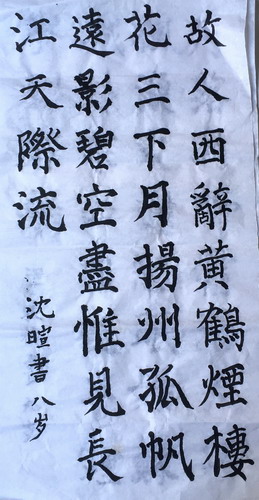 故人西辭黄鶴煙樓
花三下月揚州孤帆
遠影碧空盡惟見長
江天際流
沈暄書八岁